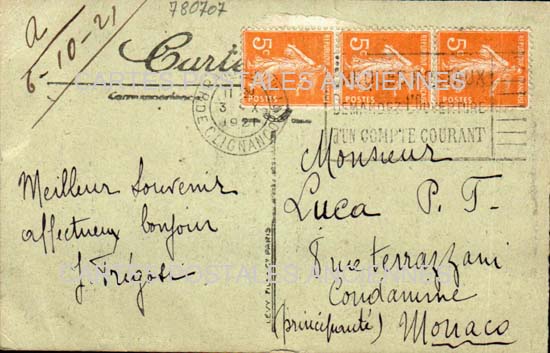 780707
a
6-10-21
Carte
CARTES POSTALES ANCIENNES
Correspondance
5c 5c 5c
POSTES POSTES POSTES
1921
R. DE CLIGNANCOURT
DEMANDEZ L'OUVERTURE
D'UN COMPTE COURANT
Monsieur
Luca P. T.
8 rue terrazzani
Condamine
(principauté) Monaco
Meilleur Souvenir
affectueux bonjour
CARTES POSTALES ANCIENNES
LEVY FILS PARIS